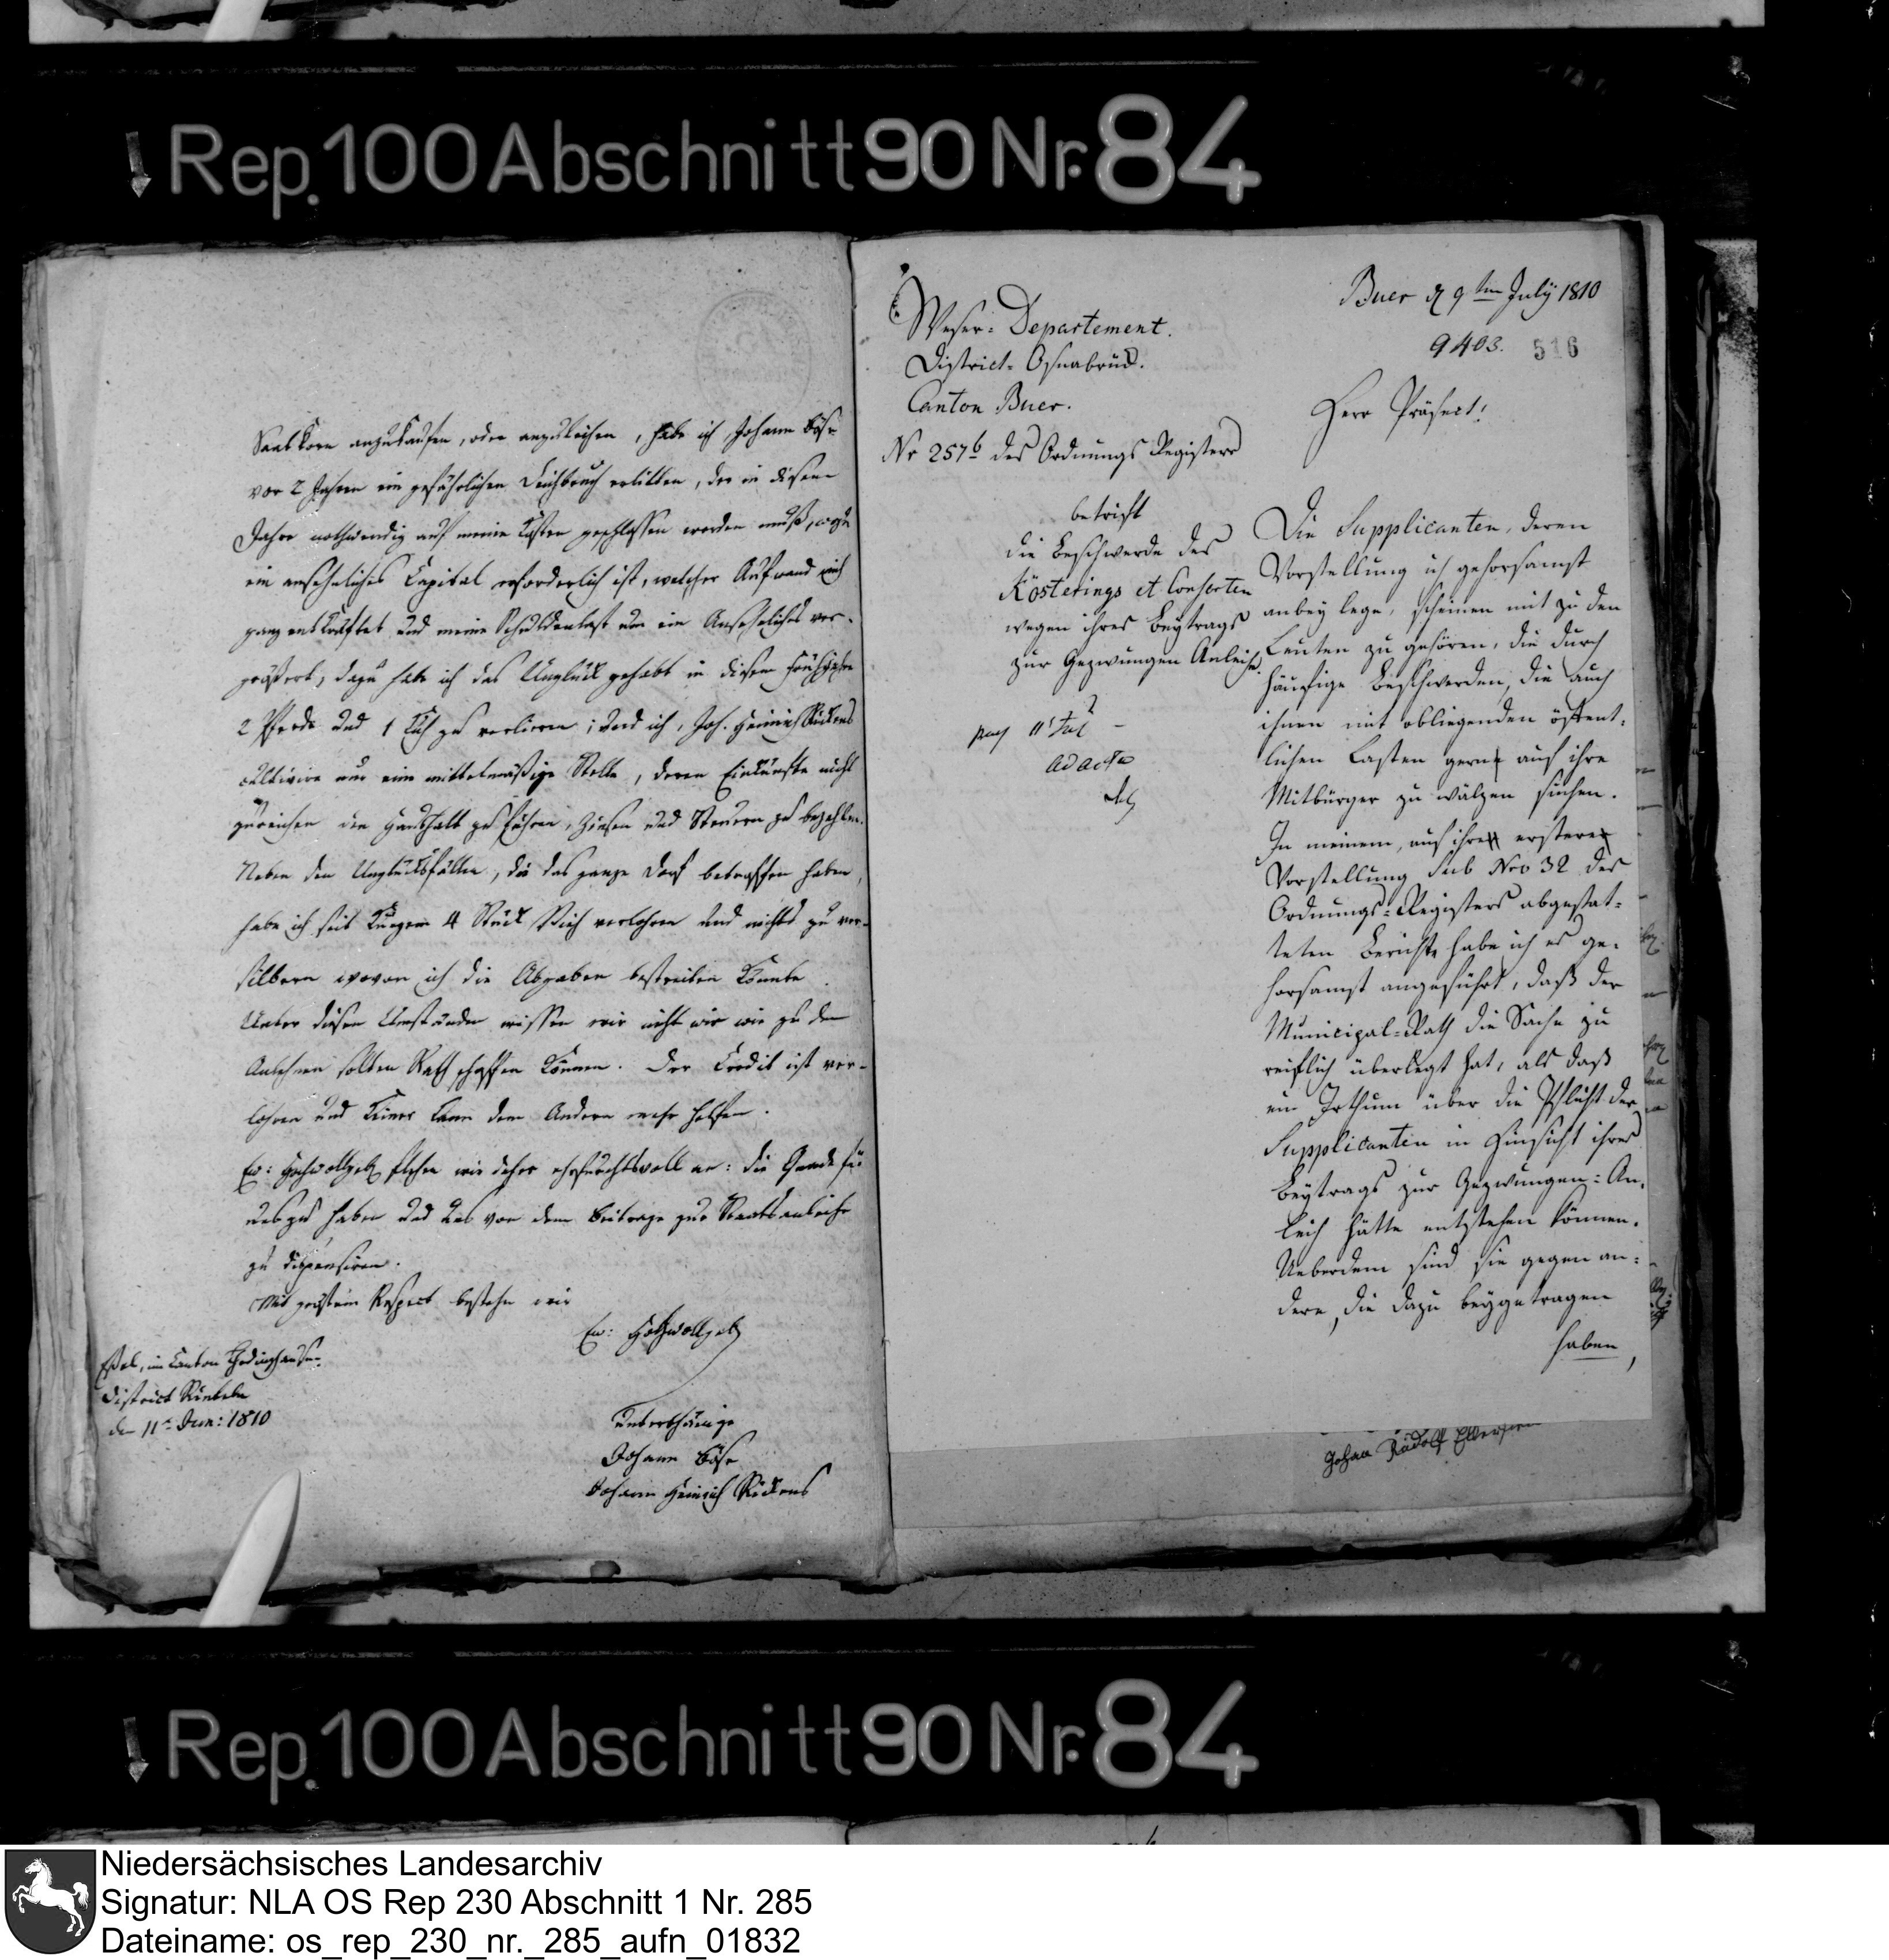 Rep. 100 Abschnitt 90 Nr. 84
Saatkorn anzukaufen, oder anzuleihen, habe ich, Johann Böse
vor 2 Jahren ein gefährlichen Deichbruch erlitten, der in diesem
Jahre nothwendig auf meine Kosten geschlossen werden muß, wozu
ein ansehnliches Capital erforderlich ist, welcher Aufwand mich
ganz entkräftet und meine Schuldenlast um ein Ansehnliches ver-
größert, dazu habe ich das Unglück gehabt in diesem Frühjahre
2 Pferde und 1 Kuh zu verlieren; und ich, Joh. Heinrich Rickens
cultivire nur eine mittelmäßige Stelle, deren Einkünfte nicht
zureichen den Haushalt zu führen, Zinsen und Steuern zu bezahlen.
Neben den Unglücksfällen, die das ganze Dorf betroffen haben,
habe ich seit Kurzem 4 Stück Vieh verlohren und nichts zu ver-
silbern wovon ich die Abgaben bestreiten könnte.
Unter diesen Umständen wissen wir nicht wie wir zu den
Anlehnen sollten Rath schaffen können. Der Credit ist ver-
lohren und Keiner kann dem Andern mehr helfen.
Ew: Hochwollgeb flehen wir daher ehrfurchtsvoll an: die Gnade für
uns zu haben und uns von dem Beitrage zur Staatsanleihe
zu dispensiren.
Mit großtem Respect bestehn wir
Ew: Hochwollgeb
im Canton Thedinghausen
District Rinteln
den 11t Jun: 1810
unterthänige
Johann Böse
Johann Heinrich Rickens
Buer d 9ten July 1810
Weser-Departement.
9403. 516
District-Osnabrück.
Canton Buer.
Herr Präfect!
Nr 257b des Ordnungs Registers
betrift
die Beschwerde des
Kösterings et Consorten
wegen ihres Beytrags
zur Gezwungen Anleihe.
11t Jul
ad acta
Die Supplicanten, deren
Vorstellung ich gehorsamst
anbey lege, scheinen mit zu den
Leuten zu gehören, die durch
häufige Beschwerden, die auch
ihnen mit obliegenden öffent-
lichen Lasten gern auf ihre
Mitbürger zu wälzen suchen.
In meinem, auf ihre erstere
Vorstellung sub Nro 32 des
Ordnungs-Registers abgestat-
teten Berichte habe ich es ge-
horsamst angeführt, daß der
Municipal-Rath die Sache zu
reiflich überlegt hat, als daß
ein Irthum über die Pflicht der
Supplicanten in Hinsicht ihres
Beytrags zur Gezwungen-An-
leih hätte entstehen können.
Ueberdem sind sie gegen an-
dere, die dazu beygetragen
haben,
Johan Rudolf
Rep. 100 Abschnitt 90 Nr. 84
Niedersächsisches Landesarchiv
Signatur: NLA OS Rep 230 Abschnitt 1 Nr. 285
Dateiname: os_rep_230_nr._285_aufn_01832